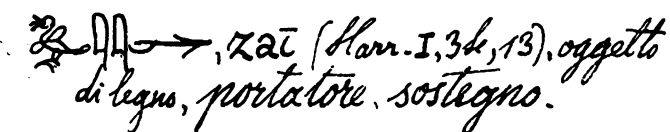 , zaī (Harr. I, 34, 13), oggetto
di legno, portatore. sostegno.